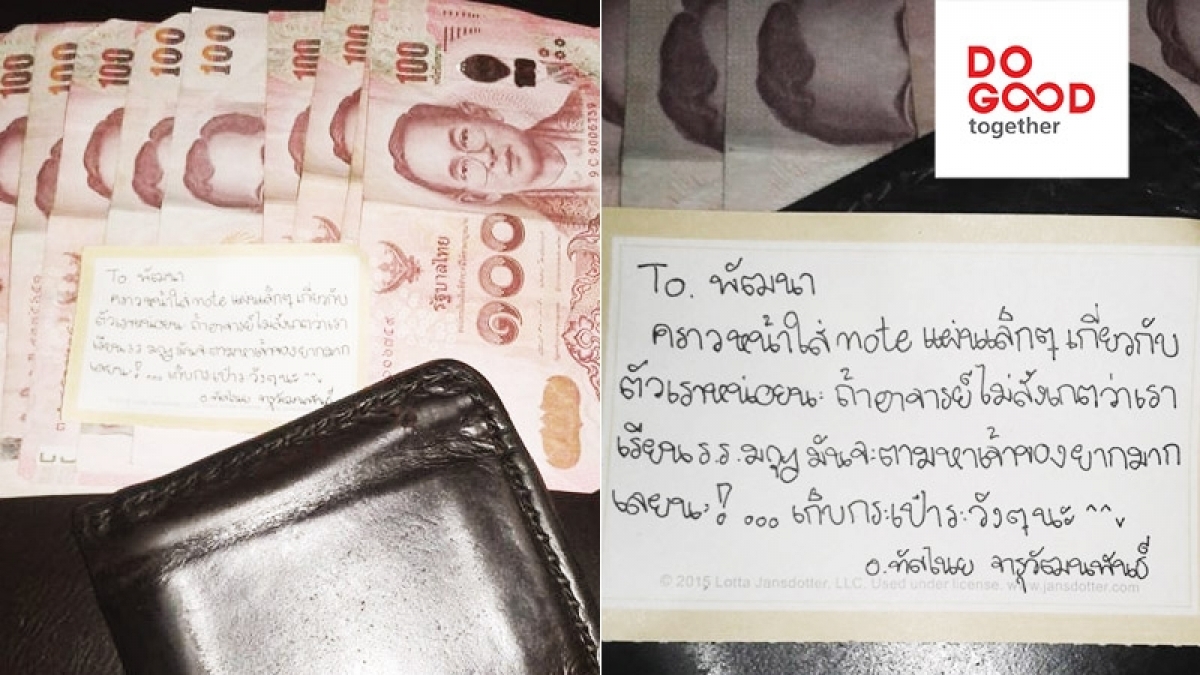 100
100
100
100
100
100
100
100
9C9006739
รัฐบาลไทย
๑๐๐
To พัฒนา
คราวหน้าใส่ note แผ่นเล็กๆ เกี่ยวกับ
ตัวเราหน่อยนะ ถ้าอาจารย์ไม่สังเกตว่าเรา
เรียน ร.ร. มกุฎ มันจะตามหาเจ้าของยากมาก
เลยนะ! ... เก็บกระเป๋าระวังๆนะ ^^
อ.ทัศไนย จารุวัฒนพันธ์
DO
GOOD
together
To. พัฒนา
คราวหน้าใส่ note แผ่นเล็กๆ เกี่ยวกับ
ตัวเราหน่อยนะ ถ้าอาจารย์ไม่สังเกตว่าเรา
เรียน ร.ร. มกุฎ มันจะตามหาเจ้าของยากมาก
เลยนะ! ... เก็บกระเป๋าระวังๆนะ ^^
อ.ทัศไนย จารุวัฒนพันธ์
© 2015 Lotta Jansdotter, LLC. Used under license. www.jansdotter.com